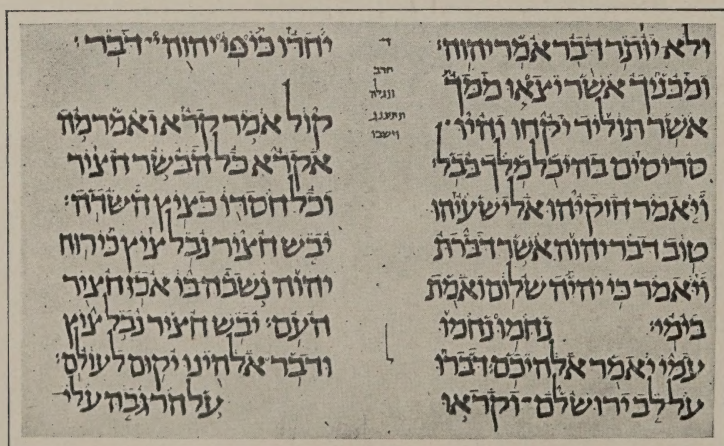 ולא יותר דבר אמר יהוה׃
ומבניך אשר יצאו ממך
אשר תוליד יקחו והיו
סריסים בהיכל מלך בבל׃
ויאמר חזקיהו אל ישעיהו
טוב דבר יהוה אשר דברת
ויאמר כי יהיה שלום ואמת
בימי׃ נחמו נחמו
עמי יאמר אלהיכם׃ דברו
על לב ירושלם וקראו
ד
חרב
ונגלה
תתענג
וישבו
יחדו כי פי יהוה דבר׃
קול אמר קרא ואמר מה
אקרא כל הבשר חציר
וכל חסדו כציץ השדה׃
יבש חציר נבל ציץ כי רוח
יהוה נשבה בו אכן חציר
העם׃ יבש חציר נבל ציץ
ודבר אלהינו יקום לעולם׃
על הר גבה עלי